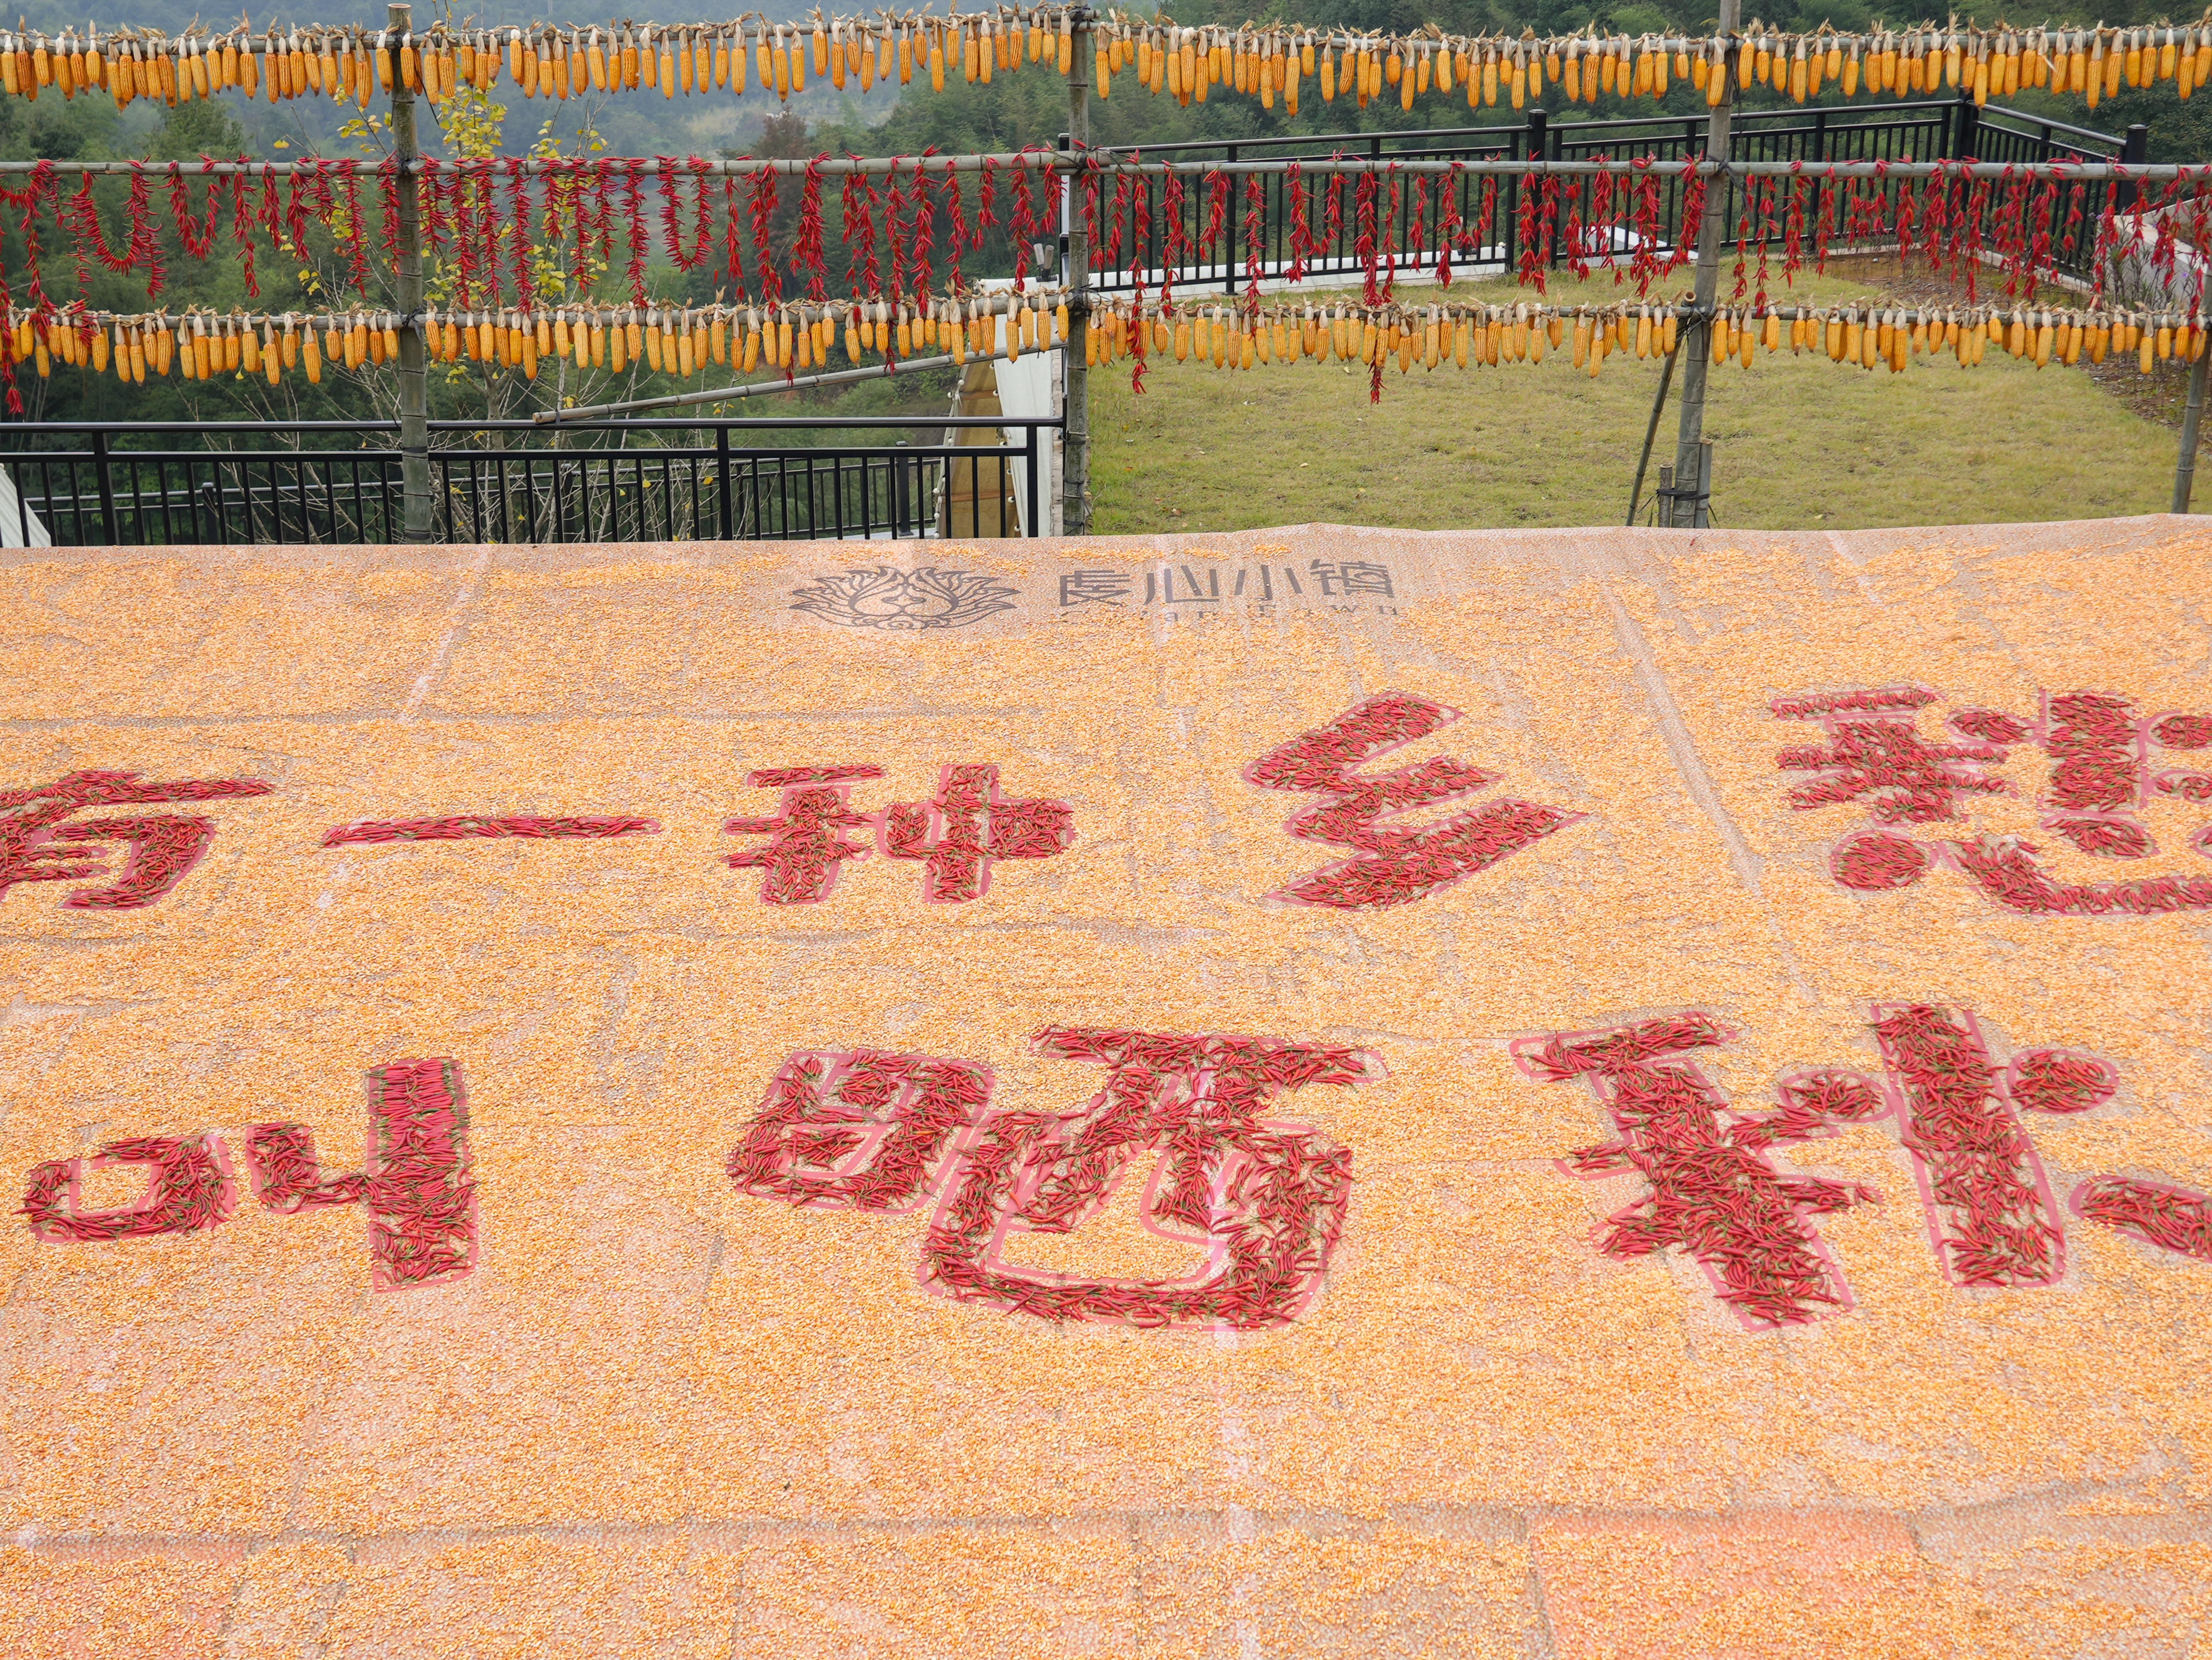 虔心小镇
Town
有一种乡愁
叫晒秋